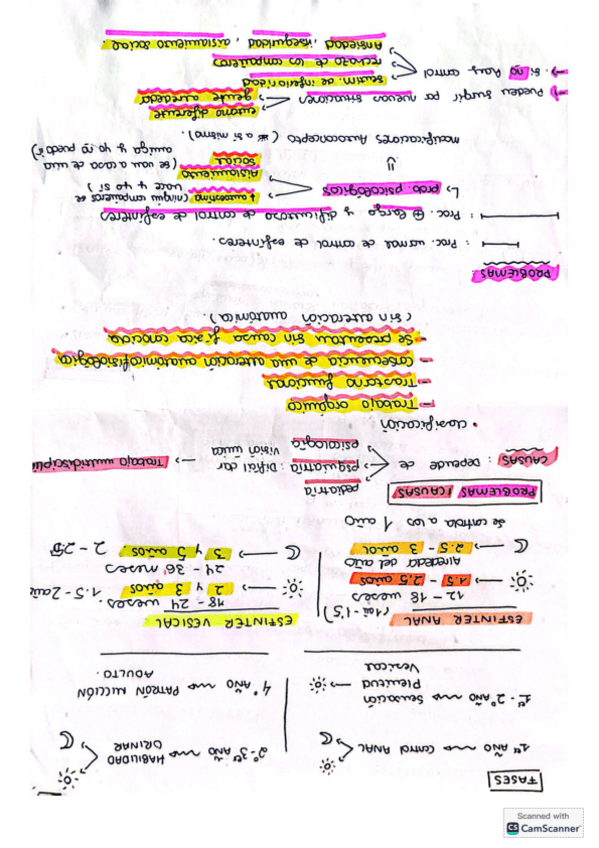 FASES
1er AÑO CONTROL ANAL
1er - 2º AÑO Sensación Plenitud Vesical
2º-3er AÑO HABILIDAD ORINAR
4º AÑO PATRÓN MICCIÓN ADULTO.
ESFINTER ANAL
12 - 18 meses
1.5 - 2.5 años
Alrededor del año
2.5 - 3 años
se controla a los 1 año
ESFINTER VESICAL
18 - 24 meses
2 y 3 años 1.5-2
24 - 36 meses
3 y 5 años 2 - 2.5
PROBLEMAS | CAUSAS
CAUSAS : Depende de
pediatría
psiquiatría : Difícil dar visión única
psicología
Trabajo multidiscipli
• clasificación
- Trabajo orgánico
- Trastorno funcional
- Consecuencia de una alteración anatómica/fisiológica
- Se presenta sin causa física conocida
(sin alteración anatómica).
PROBLEMAS :
: Proc. normal de control de esfínteres.
: Proc. ⊕ largo y dificultoso de control de esfínteres
↳ prob. psicológicos
↓ autoestima (ningún compañero se hace y yo sí)
Aislamiento social (se van a casa de una amiga y yo no puedo)
=
modificaciones Autoconcepto ( a sí mismo).
→ Pueden surgir por nuevas situaciones
entorno diferente
gente alrededor
→ . Si no hay control
sentim. de inferioridad
rechazo de los compañeros
Ansiedad, inseguridad, aislamiento social.
Scanned with
CS CamScanner